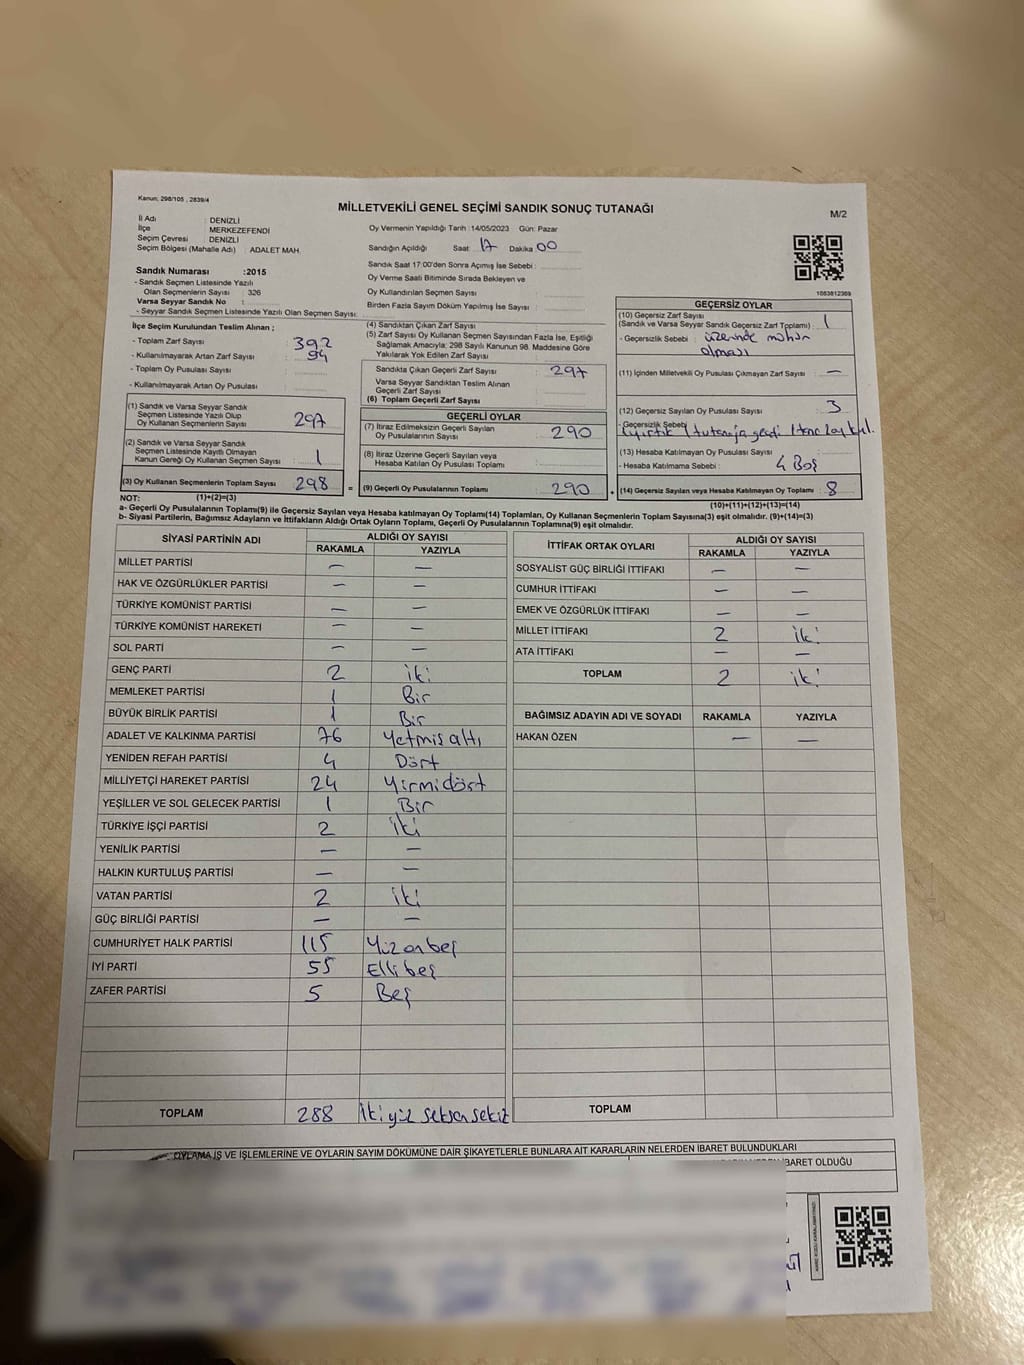 Kanun; 298/105 , 2839/4
MİLLETVEKİLİ GENEL SEÇİMİ SANDIK SONUÇ TUTANAĞI
M/2
İl Adı : DENİZLİ
İlçe : MERKEZEFENDİ
Seçim Çevresi : DENİZLİ
Seçim Bölgesi (Mahalle Adı) : ADALET MAH.
Oy Vermenin Yapıldığı Tarih :14/05/2023 Gün: Pazar
Sandığın Açıldığı Saat: 17 Dakika 00
Sandık Saat 17:00'den Sonra Açımış İse Sebebi :
Oy Verme Saati Bitiminde Sırada Bekleyen ve
Oy Kullandırılan Seçmen Sayısı
Birden Fazla Sayım Döküm Yapılmış İse Sayısı :
Sandık Numarası :2015
- Sandık Seçmen Listesinde Yazılı
Olan Seçmenlerin Sayısı : 326
Varsa Seyyar Sandık No :
- Seyyar Sandık Seçmen Listesinde Yazılı Olan Seçmen Sayısı:
İlçe Seçim Kurulundan Teslim Alınan ;
- Toplam Zarf Sayısı : 392
- Kullanılmayarak Artan Zarf Sayısı : 94
- Toplam Oy Pusulası Sayısı :
- Kullanılmayarak Artan Oy Pusulası
(1) Sandık ve Varsa Seyyar Sandık
Seçmen Listesinde Yazılı Olup
Oy Kullanan Seçmenlerin Sayısı : 297
(2) Sandık ve Varsa Seyyar Sandık
Seçmen Listesinde Kayıtlı Olmayan
Kanun Gereği Oy Kullanan Seçmen Sayısı : 1
(3) Oy Kullanan Seçmenlerin Toplam Sayısı : 298
(4) Sandıktan Çıkan Zarf Sayısı :
(5) Zarf Sayısı Oy Kullanan Seçmen Sayısından Fazla İse, Eşitliği
Sağlamak Amacıyla; 298 Sayılı Kanunun 98. Maddesine Göre
Yakılarak Yok Edilen Zarf Sayısı :
Sandıkta Çıkan Geçerli Zarf Sayısı : 297
Varsa Seyyar Sandıktan Teslim Alınan
Geçerli Zarf Sayısı :
(6) Toplam Geçerli Zarf Sayısı :
GEÇERLİ OYLAR
(7) İtiraz Edilmeksizin Geçerli Sayılan
Oy Pusulalarının Sayısı : 290
(8) İtiraz Üzerine Geçerli Sayılan veya
Hesaba Katılan Oy Pusulası Toplamı :
= (9) Geçerli Oy Pusulalarının Toplamı : 290 +
1083812369
GEÇERSİZ OYLAR
(10) Geçersiz Zarf Sayısı
(Sandık ve Varsa Seyyar Sandık Geçersiz Zarf Toplamı) : 1
- Geçersizlik Sebebi : üzerinde mühür
olması
(11) İçinden Milletvekili Oy Pusulası Çıkmayan Zarf Sayısı : —
(12) Geçersiz Sayılan Oy Pusulası Sayısı : 3
- Geçersizlik Sebebi
(13) Hesaba Katılmayan Oy Pusulası Sayısı :
- Hesaba Katılmama Sebebi : 4 Boş
(14) Geçersiz Sayılan veya Hesaba Katılmayan Oy Toplamı : 8
NOT: (1)+(2)=(3)
(10)+(11)+(12)+(13)=(14)
a- Geçerli Oy Pusulaları Toplamı(9) ile Geçersiz Sayılan veya Hesaba katılmayan Oy Toplamı(14) Toplamları, Oy Kullanan Seçmenlerin Toplam Sayısına(3) eşit olmalıdır. (9)+(14)=(3)
b- Siyasi Partilerin, Bağımsız Adayların ve İttifakların Aldığı Ortak Oyların Toplamı, Geçerli Oy Pusulalarının Toplamına(9) eşit olmalıdır.
SİYASİ PARTİNİN ADI
ALDIĞI OY SAYISI
RAKAMLA YAZIYLA
MİLLET PARTİSİ — —
HAK VE ÖZGÜRLÜKLER PARTİSİ — —
TÜRKİYE KOMÜNİST PARTİSİ — —
TÜRKİYE KOMÜNİST HAREKETİ — —
SOL PARTİ — —
GENÇ PARTİ 2 iki
MEMLEKET PARTİSİ 1 Bir
BÜYÜK BİRLİK PARTİSİ 1 Bir
ADALET VE KALKINMA PARTİSİ 76 Yetmişaltı
YENİDEN REFAH PARTİSİ 4 Dört
MİLLİYETÇİ HAREKET PARTİSİ 24 Yirmidört
YEŞİLLER VE SOL GELECEK PARTİSİ 1 Bir
TÜRKİYE İŞÇİ PARTİSİ 2 iki
YENİLİK PARTİSİ — —
HALKIN KURTULUŞ PARTİSİ — —
VATAN PARTİSİ 2 iki
GÜÇ BİRLİĞİ PARTİSİ — —
CUMHURİYET HALK PARTİSİ 115 Yüzonbeş
İYİ PARTİ 55 Ellibeş
ZAFER PARTİSİ 5 Beş
TOPLAM 288 İkiyüz seksensekiz
İTTİFAK ORTAK OYLARI
ALDIĞI OY SAYISI
RAKAMLA YAZIYLA
SOSYALİST GÜÇ BİRLİĞİ İTTİFAKI — —
CUMHUR İTTİFAKI — —
EMEK VE ÖZGÜRLÜK İTTİFAKI — —
MİLLET İTTİFAKI 2 iki
ATA İTTİFAKI — —
TOPLAM 2 iki
BAĞIMSIZ ADAYIN ADI VE SOYADI RAKAMLA YAZIYLA
HAKAN ÖZEN — —
TOPLAM
OYLAMA İŞ VE İŞLEMLERİNE VE OYLARIN SAYIM DÖKÜMÜNE DAİR ŞİKAYETLERLE BUNLARA AİT KARARLARIN NELERDEN İBARET BULUNDUKLARI
İBARET OLDUĞU